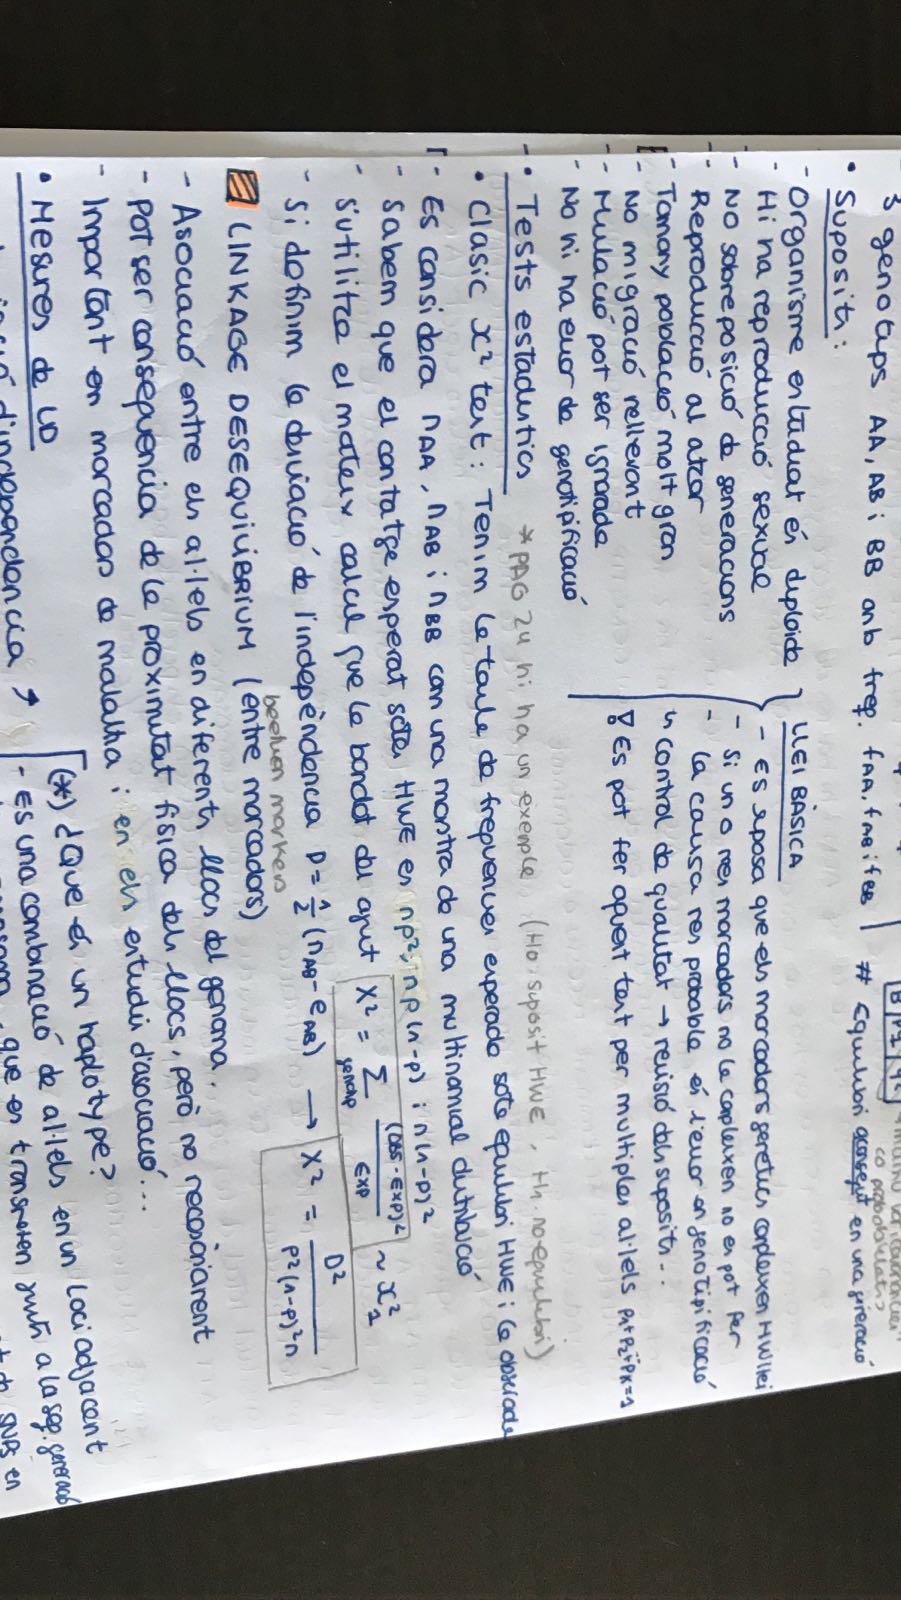 3 genotips AA, AB i BB amb freq. fAA, fAB i fBB
co probabilitats
# Equilibri aconsegut en una generació
• Suposits:
- Organisme estudiat és diploide
- Hi ha reproducció sexual
- NO sobreposició de generacions
- Reproducció al atzar
- Tamany població molt gran
- No migració rellevant
- Mutació pot ser ignorada
- No hi ha error de genotipificació
LLEI BÀSICA
- Es suposa que els marcadors genetics compleixen HW llei
- Si un o mes marcadors no le compleixen no es pot fer
- La causa mes probable és l'error en genotipificació
↳ control de qualitat → revisió dels suposits...
! Es pot fer aquest test per multiples al·lels p1+p2+..pK=1
• Tests estadistics * PAG 24 hi ha un exemple (H0 suposit HWE, H1 no equilibri)
• Clasic X² test: Tenim la taula de frequencies esperada sota equilibri HWE i la observada
- Es considera nAA, nAB i nBB com una mostra de una multinomial distribució
- Sabem que el contatge esperat sota HWE es np², np(1-p) i n(1-p)²
- S'utilitza el mateix calcul que la bondat del ajust X² = Σ genotip (OBS - EXP)² / EXP ~ X²1
- Si definim la desviació de l'indepèndencia D = 1/2 (nAB - eAB) → X² = D² / p²(1-p)²n
beetwen markers
LINKAGE DESEQUILIBRIUM (entre marcadors)
- Asociació entre els al·lels en diferents llocs del genoma.
- Pot ser consequencia de la proximitat fisica dels llocs, però no necesàriament
- Important en marcadors de malaltia i en els estudis d'asociació...
• Mesures de LD
d'independencia
(*) ¿Que és un haplotype?
- Es una combinació de al·lels en un loci adjacent
que es transmeten junts a la seg. generació
SNPs en